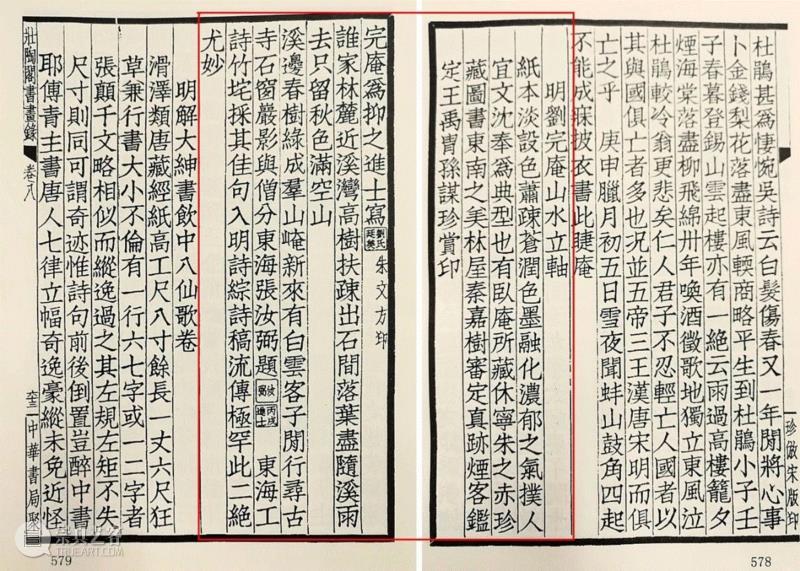 杜鵑甚爲悽惋吳詩云白髮傷春又一年閒將心事
卜金錢梨花落盡東風輭商略平生到杜鵑小子壬
子春暮登錫山雲起樓亦有一絕云雨過高樓籠夕
煙海棠落盡柳飛綿卅年喚酒徵歌地獨立東風泣
杜鵑較冷翁更悲矣仁人君子不忍輕亡人國者以
其與國俱亡者多也況並五帝三王漢唐宋明而俱
亡之乎 庚申臘月初五日雪夜聞蚌山鼓角四起
不能成寐披衣書此睫庵
明劉完庵山水立軸
紙本淡設色蕭疎蒼潤色墨融化濃郁之氣撲人
宜文沈奉爲典型也有臥庵所藏休寧朱之赤珍
藏圖書東南之美林屋秦嘉樹審定真跡煙客鑑
定王禹胄孫謀珍賞印
珍倣宋版印
578
完庵爲抑之進士寫 劉氏廷美 朱文方印
誰家林麓近溪灣高樹扶疎出石間落葉盡隨溪雨
去只留秋色滿空山
溪邊春樹綠成羣山崦新來有白雲客子閒行尋古
寺石窗巖影與僧分東海張汝弼題 汝弼 丙戌進士 東海工
詩竹垞採其佳句入明詩綜詩稿流傳極罕此二絕
尤妙
明解大紳書飲中八仙歌卷
滑澤類唐藏經紙高工尺八寸餘長一丈六尺狂
草兼行書大小不倫有一行六七字或一二字者
張顛千文略相似而縱逸過之其左規右矩不失
尺寸則同可謂奇迹惟詩句前後倒置豈醉中書
耶傳青主書唐人七律立幅奇逸豪縱未免近怪
壯陶閣書畫錄 卷八
中華書局聚
579
TRUEART.COM